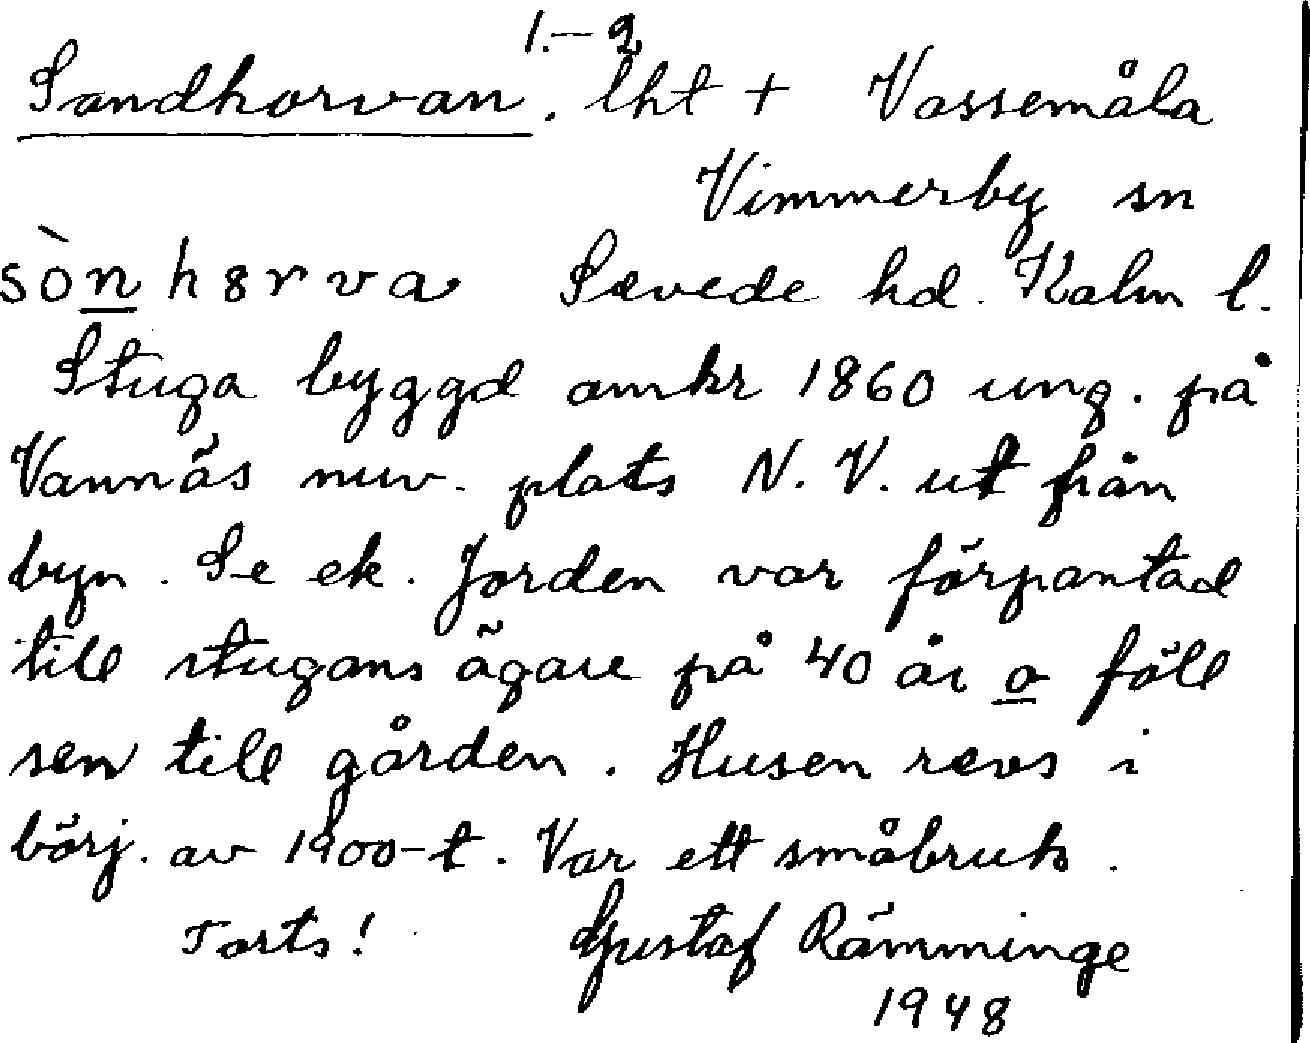 1.–2
Sandhorvan. lht + Vassemåla
Vimmerby sn
sònhørva Sevede hd. Kalm l.
Stuga byggd omkr 1860 ung. på
Vannäs nuv. plats N. V. ut från
byn. Se ek. Jorden var förpantad
till stugans ägare på 40 år o föll
sen till gården. Husen revs i
börj. av 1900-t. Var ett småbruk.
Forts! Gustaf Rämminge
1948